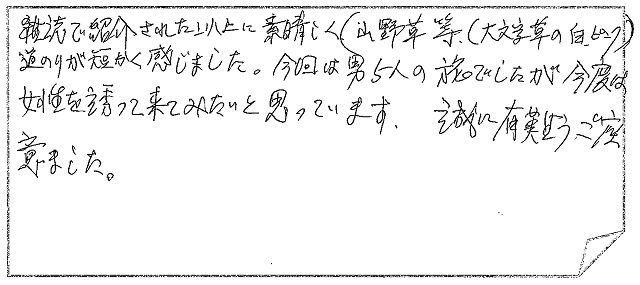 雑誌で紹介された以上に素晴しく(山野草等(大文字草の白ピンク)
道のりが短かく感じました。今回は男5人の旅でしたが今度は
女性を誘って来てみたいと思っています。 誠に有難うござ
ました。